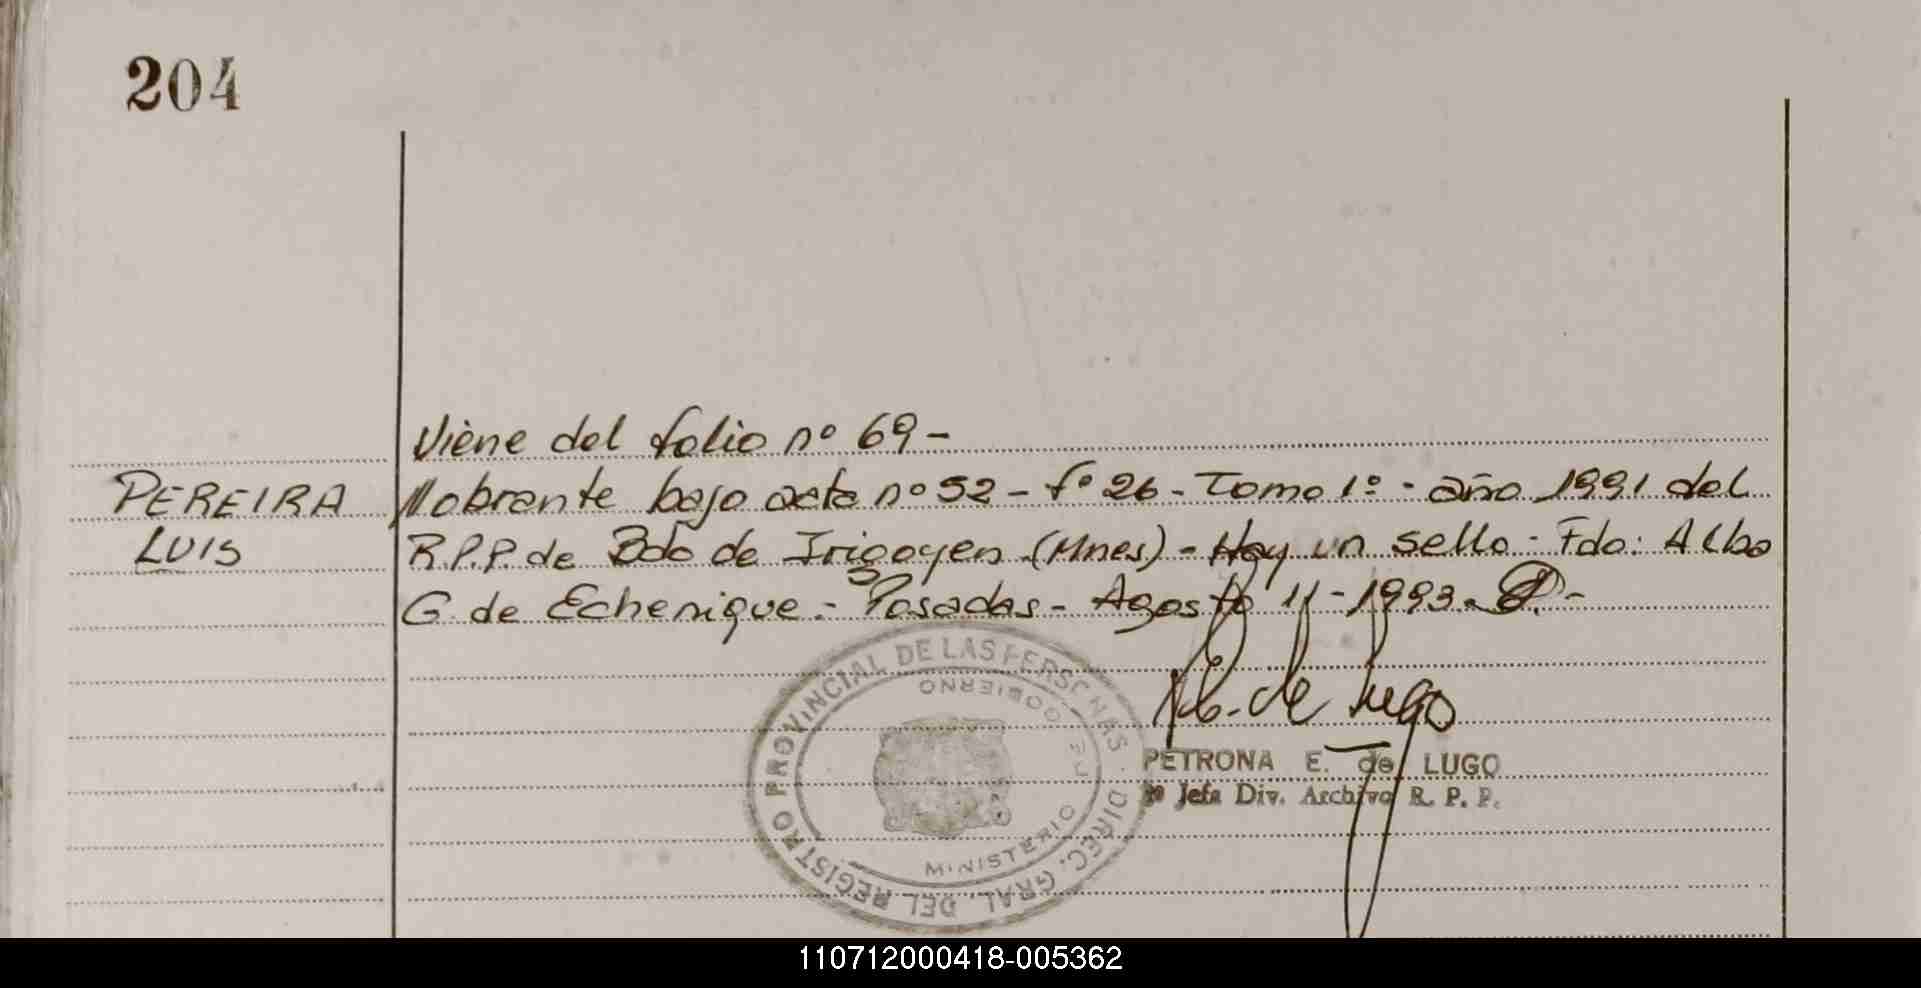 204
Viene del folio nº 69-
PEREIRA
LUIS
Nobrante bajo acta nº 52 - fº 26 - Tomo 1º - año 1991 del
R.P.P. de Bdo de Irigoyen (Mnes) - Hay un sello - Fdo: Alba
G. de Echenique - Posadas - Agosto 11-1993.
E. de Lugo
PETRONA E. de LUGO
Jefa Div. Archivo R. P. P.
DIREC. GRAL. DEL REGISTRO PROVINCIAL DE LAS PERSONAS
MINISTERIO DE GOBIERNO
110712000418-005362